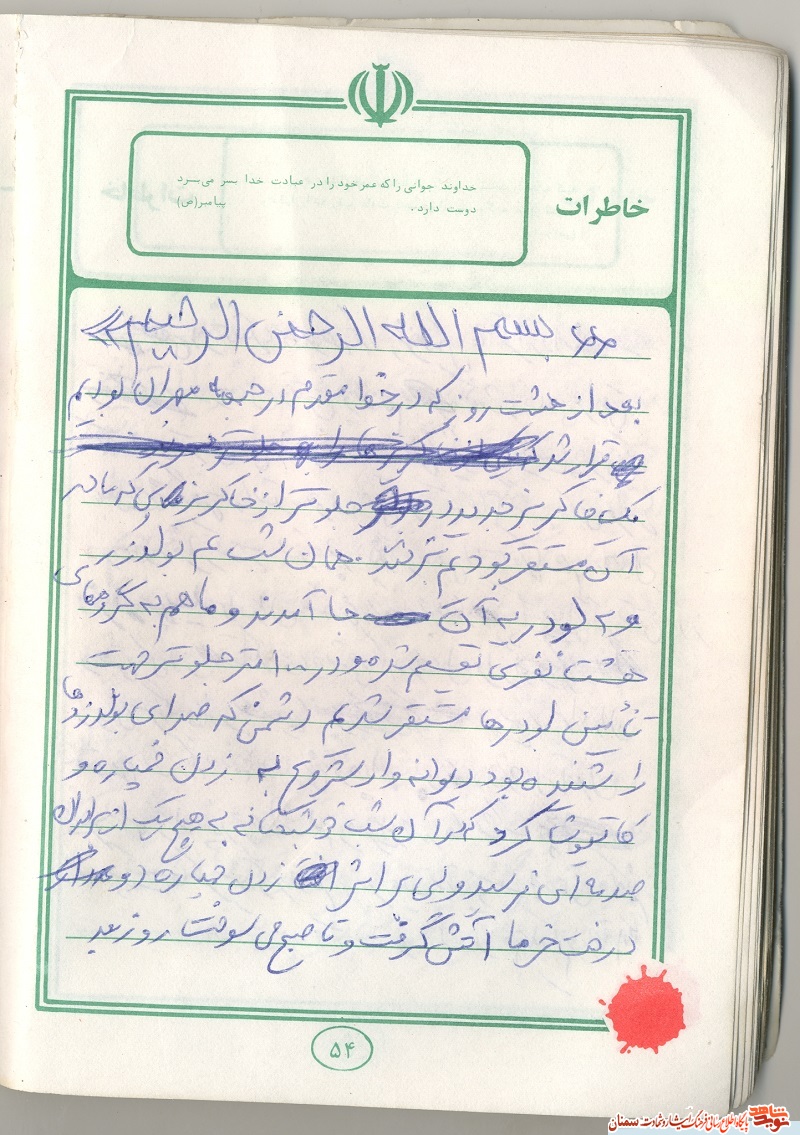 خاطرات
خداوند جوانی را که عمر خود را در عبادت خدا بسر می‌برد
دوست دارد. پیامبر(ص)
بسم الله الرحمن الرحیم
بعد از هشت روز که در خط مقدم در جبهه مهران بودیم
قرار شد
یک خاکریز جدید در جلوتر از خاکریزهای که ما در
آن مستقر بودیم بزنند. همان شب هم بولدوزر
و لودر به آن جا آمدند و ما هم به گروههای
هشت نفری تقسیم شده و در ۱۰۰ متر جلوتر جهت
تأمین لودرها مستقر شدیم دشمن که صدای بولدوزرها
را شنیده بود دیوانه وار شروع به زدن خمپاره و
کاتیوشا کرد که در آن شب خوشبختانه به هیچ یک از برادران
صدمه ای نرسید ولی بر اثر زدن خمپاره دو
درخت خرما آتش گرفت و تا صبح می سوخت روز بعد
۵۴
نوید شاهد
پایگاه اطلاع رسانی فرهنگ ایثار و شهادت سمنان